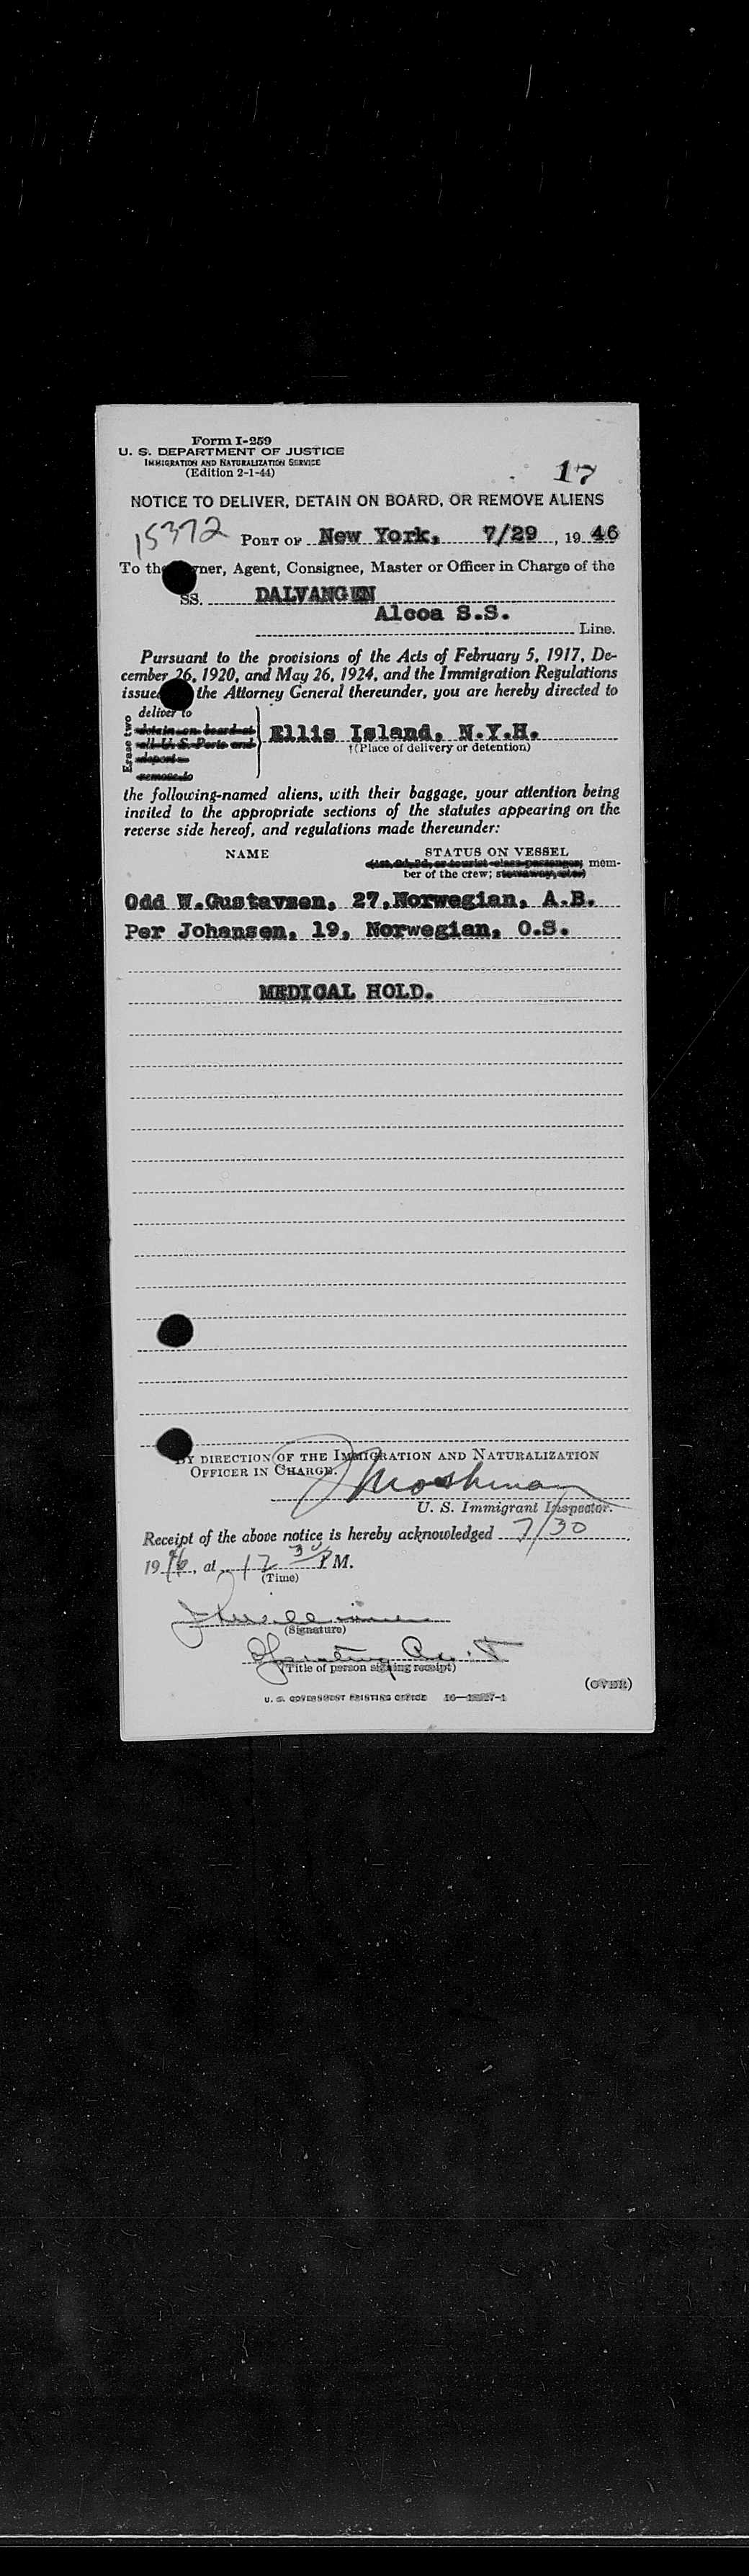 Form I-259
U. S. DEPARTMENT OF JUSTICE
IMMIGRATION AND NATURALIZATION SERVICE
(Edition 2-1-44)
17
NOTICE TO DELIVER, DETAIN ON BOARD, OR REMOVE ALIENS
15372 PORT OF New York, 7/29, 19 46
To the ner, Agent, Consignee, Master or Officer in Charge of the
SS. DALVANGEN
Alcoa S.S.
Line.
Pursuant to the provisions of the Acts of February 5, 1917, De-
cember 26, 1920, and May 26, 1924, and the Immigration Regulations
issue the Attorney General thereunder, you are hereby directed to
Erase two
deliver to
detain on board at
all U. S. Ports and
deport
remove to
Ellis Island, N.Y.H.
†(Place of delivery or detention)
the following-named aliens, with their baggage, your attention being
invited to the appropriate sections of the statutes appearing on the
reverse side hereof, and regulations made thereunder:
NAME STATUS ON VESSEL
(1st, 2d, 3d, or tourist class passenger; mem-
ber of the crew; stowaway, etc.)
Odd W.Gustavsen, 27,Norwegian, A.B.
Per Johansen, 19, Norwegian, O.S.
MEDICAL HOLD.
BY DIRECTION OF THE IMMIGRATION AND NATURALIZATION
OFFICER IN CHARGE.
Moshman
U. S. Immigrant Inspector.
Receipt of the above notice is hereby acknowledged 7/30
19 46, at 12 30 P M.
(Time)
(Signature)
Operating Ass't
(Title of person signing receipt)
(OVER)
U. S. GOVERNMENT PRINTING OFFICE